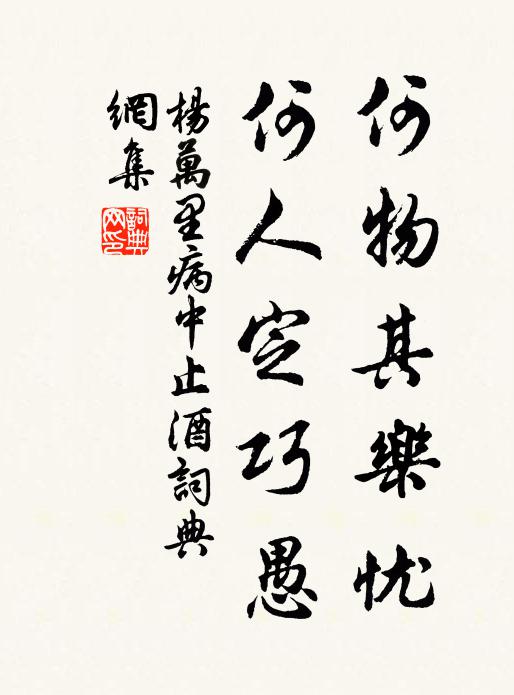 何物其樂忧
何人定巧愚
楊萬里病中止酒詞典
網集
詞典网印